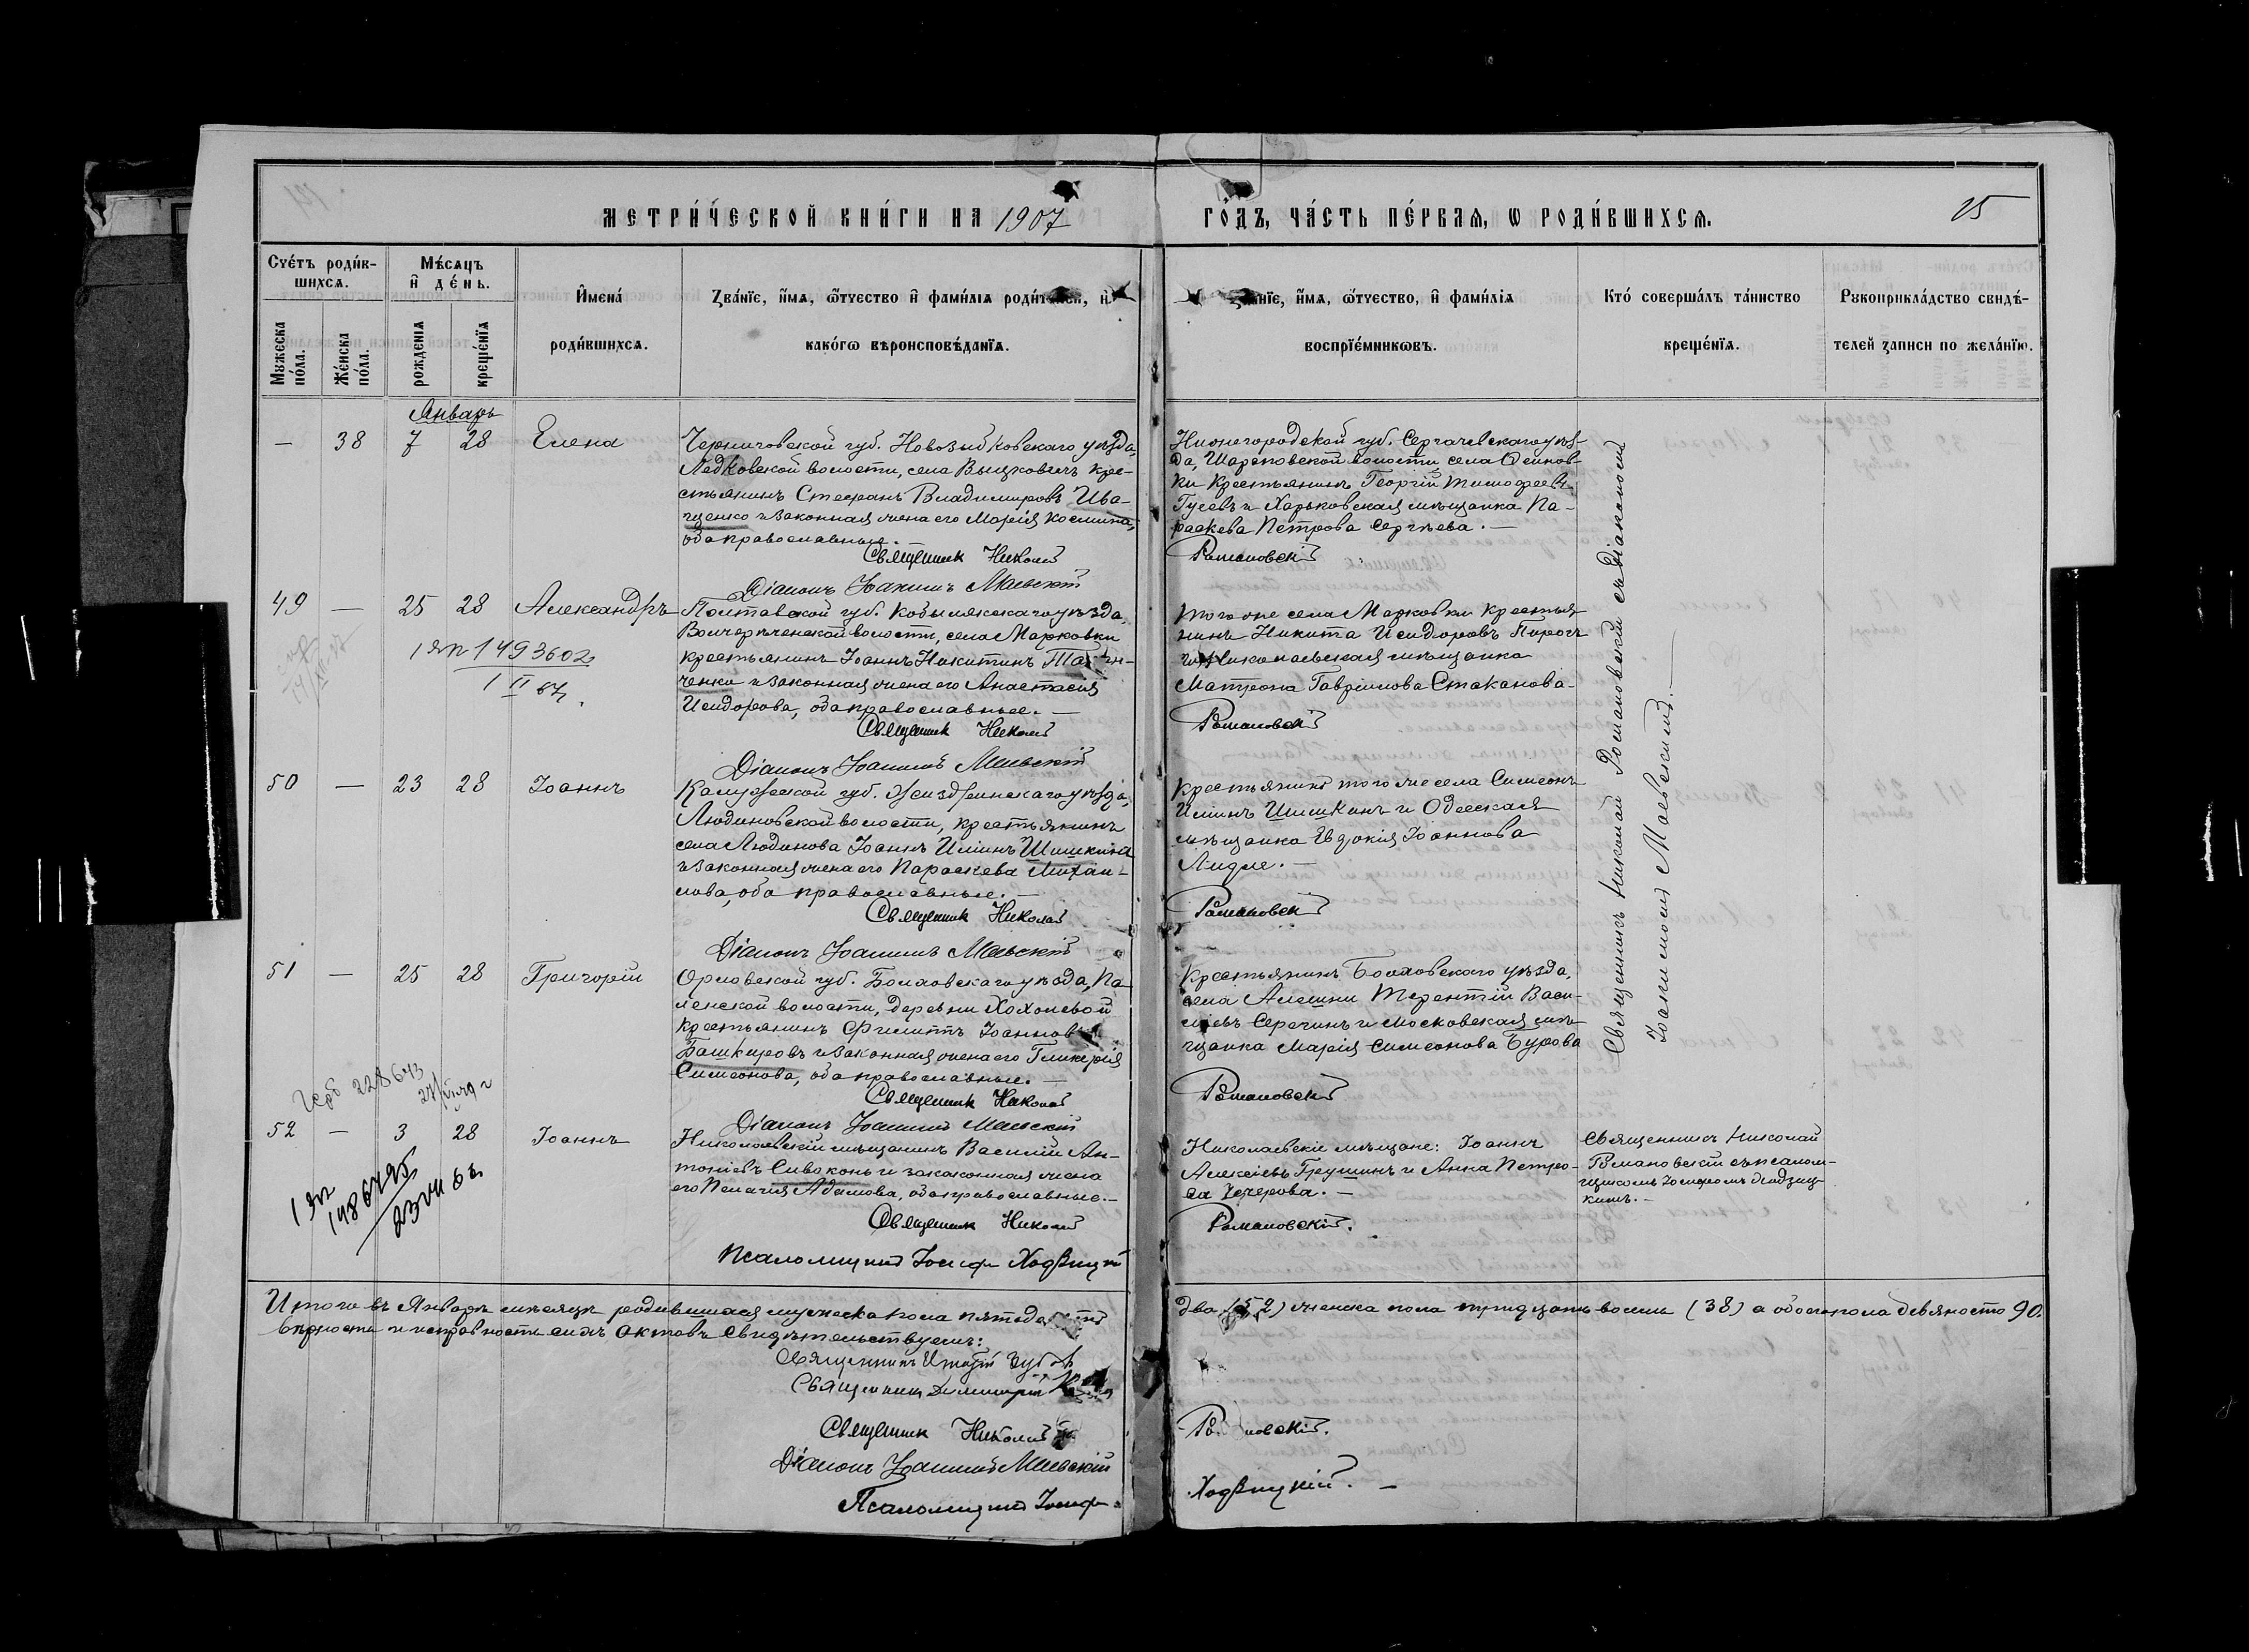 МЕТРИ́ЧЕСКОЙ КНИ́ГИ НА 1907
ГО́ДЪ, ЧА́СТЬ ПЕ́РВАѦ, Ѡ РОДИ́ВШИХСѦ.
15
Счє́тъ роди́в-
шихсѧ.
Мꙋжеска по́ла.
Же́нска по́ла.
Мѣ́сѧцъ
и҆ де́нь.
рожденїѧ
креще́нїѧ
И҆мена́
роди́вшихсѧ.
Зва́нїе, и҆́мѧ, ѻ҆́тчество и҆ фами́лїѧ роди́телей, и҆
како́гѡ вѣроисповѣ́данїѧ.
Зва́нїе, и҆́мѧ, ѻ҆́тчество, и҆ фами́лїѧ
воспрїе́мникѡвъ.
Кто́ соверша́лъ та́инство
креще́нїѧ.
Рꙋкоприкла́дство свидѣ́-
телей записи по жела́нїю.
Январь
— 38 7 28 Елена
Черниговской губ. Новозыбковскаго уѣзда,
волости, села Выщковичъ кре-
стьянинъ Стефанъ Владимировъ Ива-
щенко и законная жена его Марія Космина,
оба православные.
Священник Николай
Діаконъ Іоакимъ Маевскій
Нижегородской губ. Сергачевскаго уѣз-
да, Шараповской волости села Осинов-
ки крестьянинъ Георгій Тимофеевъ
Гусевъ и Харьковская мѣщанка Па-
раскева Петрова Сергѣева. —
Романовскій
Священникъ Николай Романовскій съ діакономъ
Іоакимомъ Маевскимъ. —
49 — 25 28 Александръ
Полтавской губ. Кобылякскаго уѣзда,
волости, села Марковки
крестьянинъ Іоаннъ Никитинъ
ченко и законная жена его Анастасія
Исидорова, оба православные. —
Священник Николай
Діаконъ Іоакимъ Маевскій
1493602
1 II 67.
того же села Марковки крестья-
нинъ Никита Исидоровъ Пирогъ
и Николаевская мѣщанка
Матрона Гавріилова Стаканова-
Романовскій
50 — 23 28 Іоаннъ
Калужской губ. Жиздринскаго уѣзда,
Людиновской волости, крестьянинъ
села Людинова Іоаннъ Илiинъ Шишкинъ
и законная жена его Параскева Михаи-
лова, оба православные. —
Священник Николай
Діаконъ Іоакимъ Маевскій
Крестьянинъ того же села Симеонъ
Илiинъ Шишкинъ и Одесская
мѣщанка Евдокія Іоаннова
Романовскій
51 — 25 28 Григорій
Орловской губ. Болховскаго уѣзда, Па-
волости, деревни Хохоловой
крестьянинъ Филиппъ Іоанновъ
Башкировъ и законная жена его Гликерія
Симеонова, оба православные. —
Священник Николай
Діаконъ Іоакимъ Маевскій
Крестьянинъ Болховскаго уѣзда,
села Алешни Терентій Васи-
ліевъ Серегинъ и Московская мѣ-
щанка Марія Симеонова Бурова
Романовскій
228643
52 — 3 28 Іоаннъ
Николаевскій мѣщанинъ Василій Ан-
тоніевъ Сивоконь и закаконная жена
его Пелагія Адамова, оба православные. —
Священник Николай
Псаломщикъ Іосифъ Ходзицкій
Николаевскіе мѣщане: Іоаннъ
Алексіевъ Грушинъ и Анна Петро-
ва —
Романовскій.
Священникъ Николай
Романовскій съ псалом-
щикомъ Іосифомъ Ходзиц-
кимъ. —
Итого въ Январѣ мѣсяцѣ родившихся мужеска пола пятьдесятъ
два (52) женска пола тридцать восемь (38) а обоего пола девяносто 90.
вѣрность и исправность сихъ актовъ свидѣтельствуемъ:
Священникъ
Священникъ Димитрій
Священник Николай Романовскій.
Діаконъ Іоакимъ Маевскій
Псаломщикъ Іосифъ Ходзицкій. —